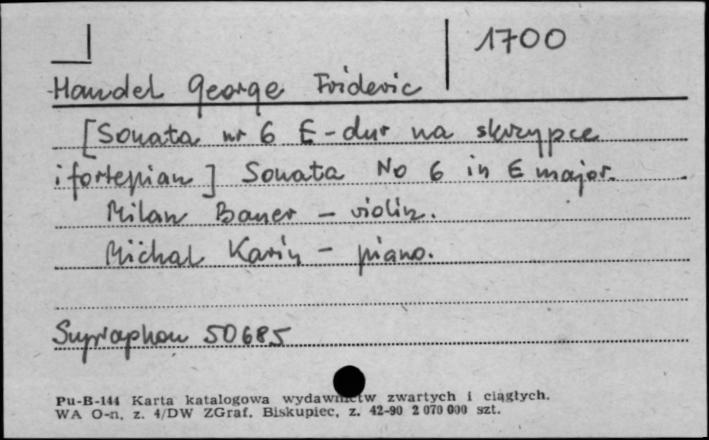 1700
Handel George Frideric
[Sonata nr 6 E-dur na skrzypce
i fortepian] Sonata No 6 in E major.
Milan Bauer – violin.
Michal Karin – piano.
Supraphon 50685
Pu-B-144 Karta katalogowa wydawnictw zwartych i ciągłych.
WA O-n, z. 4/DW ZGraf. Biskupiec, z. 42-90 2 070 000 szt.